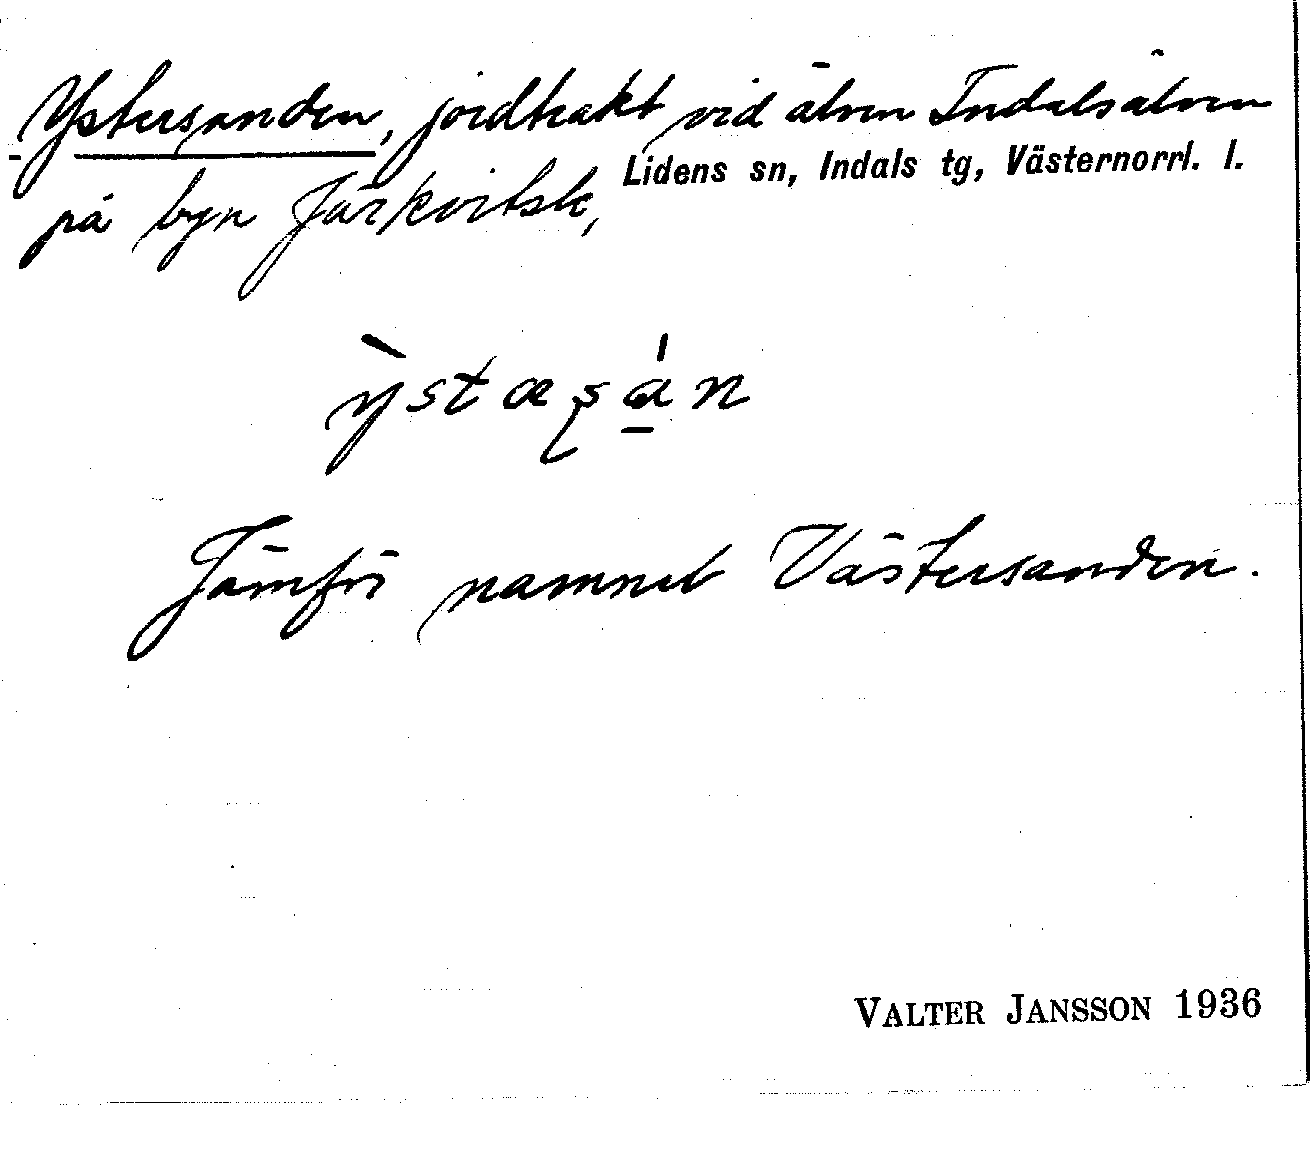 Ystersanden, jordtrakt vid älven Indalsälven
på byn Järkvitsle, Lidens sn, Indals tg, Västernorrl. l.
Jämför namnet Västersanden.
VALTER JANSSON 1936